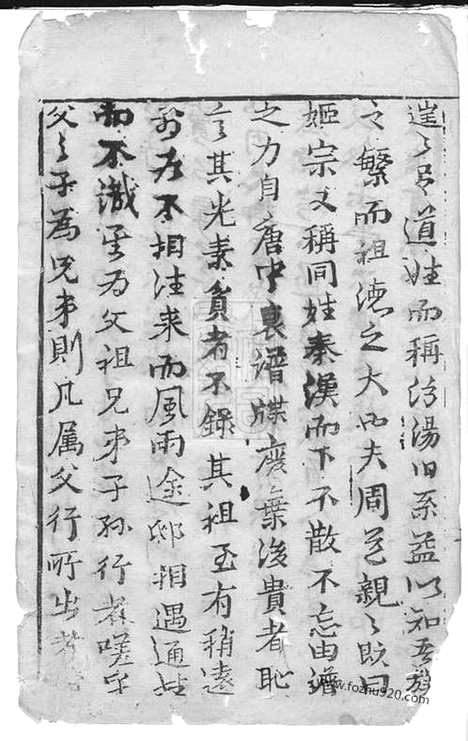 道姓而稱汾陽旧系益以知吾族
之繁而祖德之大也夫周道親之既同
姬宗又稱同姓秦漢而下不散不忘由譜
之力自唐中衰譜牒廢棄後貴者恥
言其先素貧者不錄其祖至有稍遠
不相往来而風雨途邸相遇通姓
而不識其为父祖兄弟子孙行者嗟乎
父之子為兄弟則凡属父行所出者
www.fozhu920.com